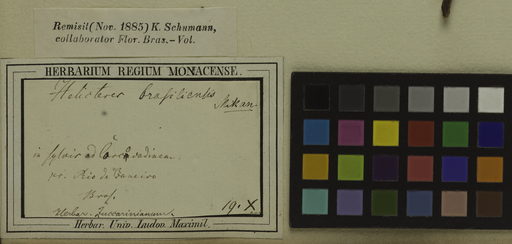 Remisit (Nov. 1885) K. Schumann,
collaborator Flor. Bras.-Vol.
HERBARIUM REGIUM MONACENSE.
Helicteres brasiliensis
Mikan.
in sylvis ad
pr. Rio de Janeiro
Bras.
Herbar. Zuccarinianum
19. X
Herbar. Univ. Ludov. Maximil.